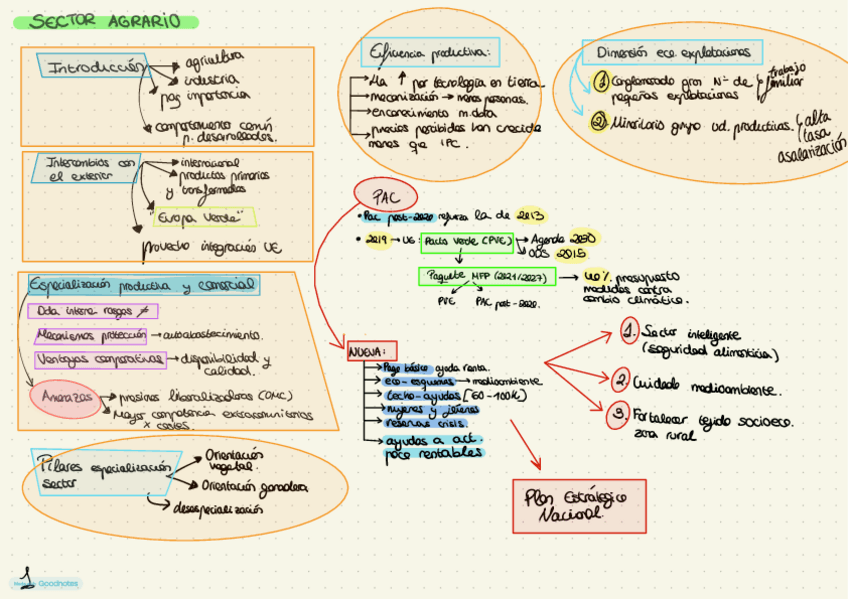 SECTOR AGRARIO
Introducción
agricultura
industria
pas importancia
comportamiento común
p. desarrollados.
Intercambios con
el exterior
internacional
productos primarios
y transformados
"Europa Verde"
provecho integración UE
Especialización productiva y comercial
Dota interre rasgos ≠
Mecanismos protección → autoabastecimiento.
Ventajas comparativas → disponibilidad y
calidad.
Amenazas
presiones liberalizadoras (OMC)
Mayor competencia extracomunitarios
x costes.
Pilares especialización
sector
Orientación
vegetal.
Orientación ganadera
desespecialización
Eficiencia productiva:
Ha ↑ por tecnología en tierra.
mecanización → menos personas.
encarecimiento m.obra
precios percibidos han crecido
menos que IPC.
Dimensión ece explotaciones
1 Conglomerado gran Nº de
pequeñas explotaciones
trabajo
familiar
2 Minoritario grupo ud. productivas.
alta
tasa
asalarización
PAC
• Pac post-2020 refuerza la de 2013
• 2019 → UE: Pacto verde (PVE)
Agenda 2030
ODS 2015
Paquete MFP (2021/2027)
40% presupuesto
medidas contra
cambio climático.
PVE
PAC post-2020.
NUEVA:
Pago básico ayuda renta.
eco-esquemas → medioambiente
techo-ayudas [60-100k]
mujeres y jóvenes
reservas crisis
ayudas a act.
poco rentables
1. Sector inteligente
(seguridad alimenticia)
2. Cuidado medioambiente.
3. Fortalecer tejido socioeco.
zona rural
Plan Estratégico
Nacional.
1
Goodnotes